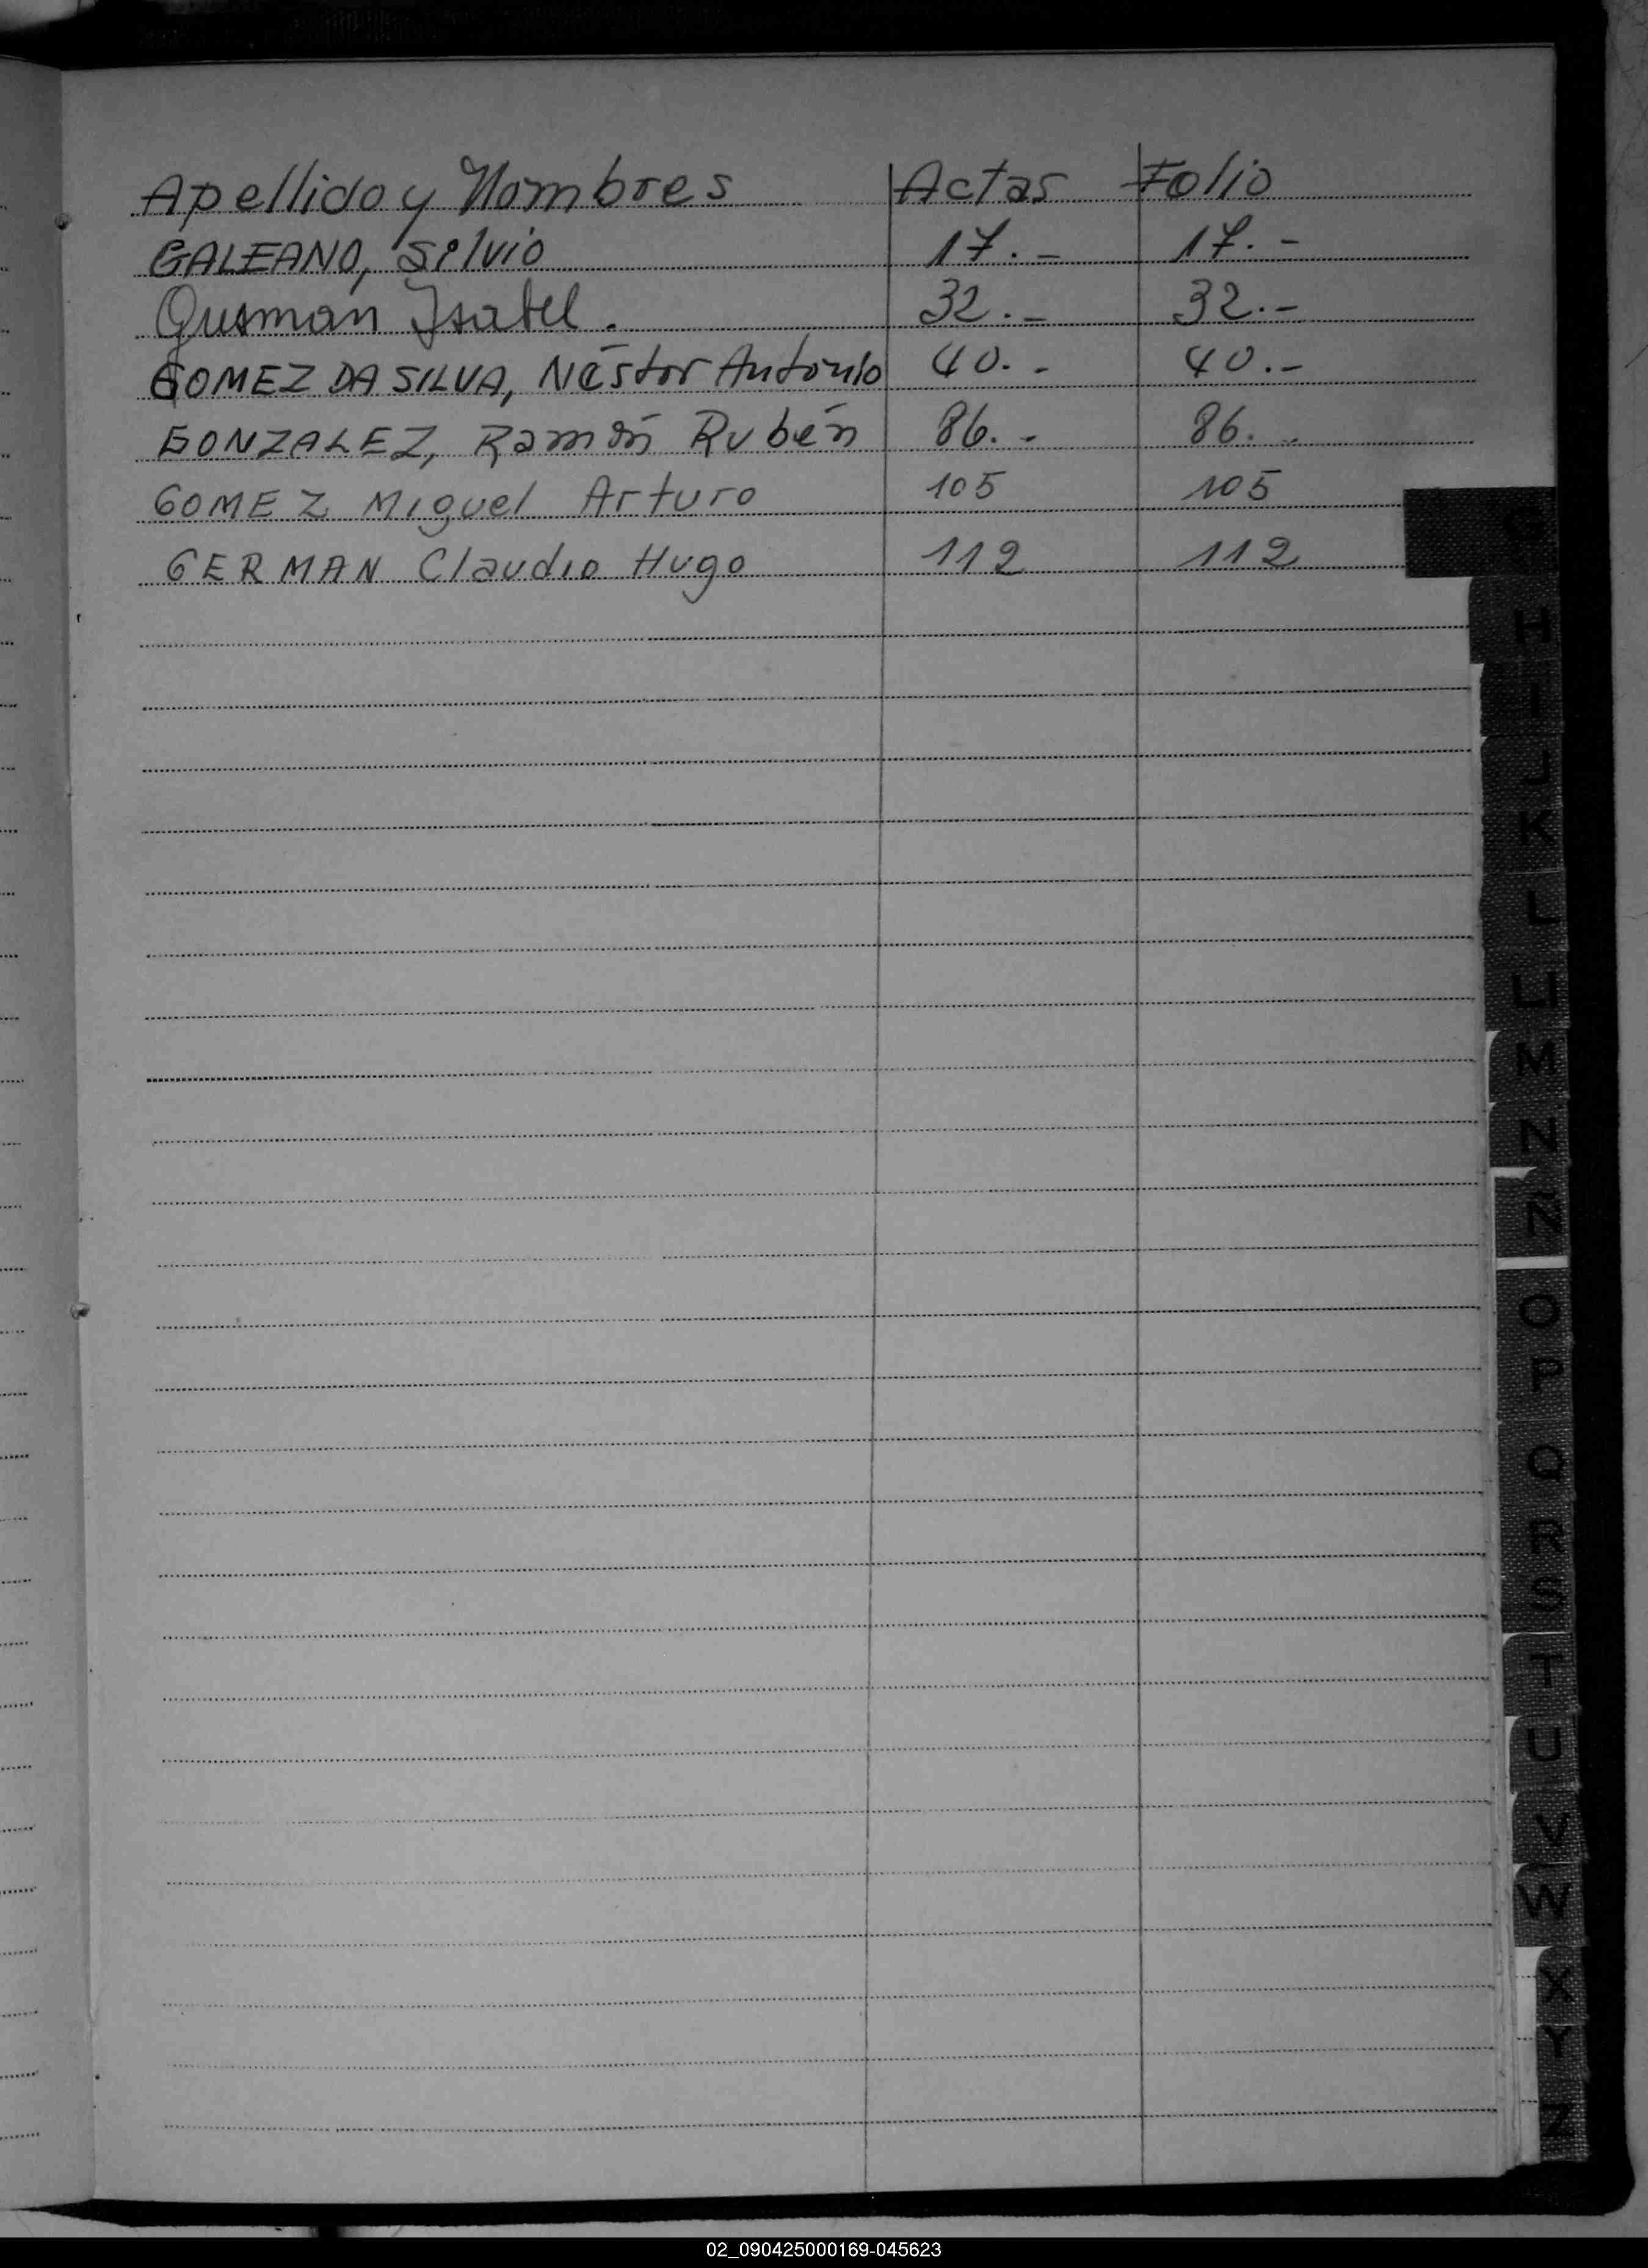 Apellido y Nombres Actas Folio
GALEANO, Silvio 17.- 17.-
Gusmán Isabel. 32.- 32.-
GOMEZ DA SILVA, Néstor Antonio 40.- 40.-
GONZALEZ, Ramón Rubén 86.- 86.-
GOMEZ Miguel Arturo 105 105
GERMAN Claudio Hugo 112 112
G
H
I
J
K
L
LL
M
N
Ñ
O
P
Q
R
S
T
U
V
W
X
Y
Z
02_090425000169-045623